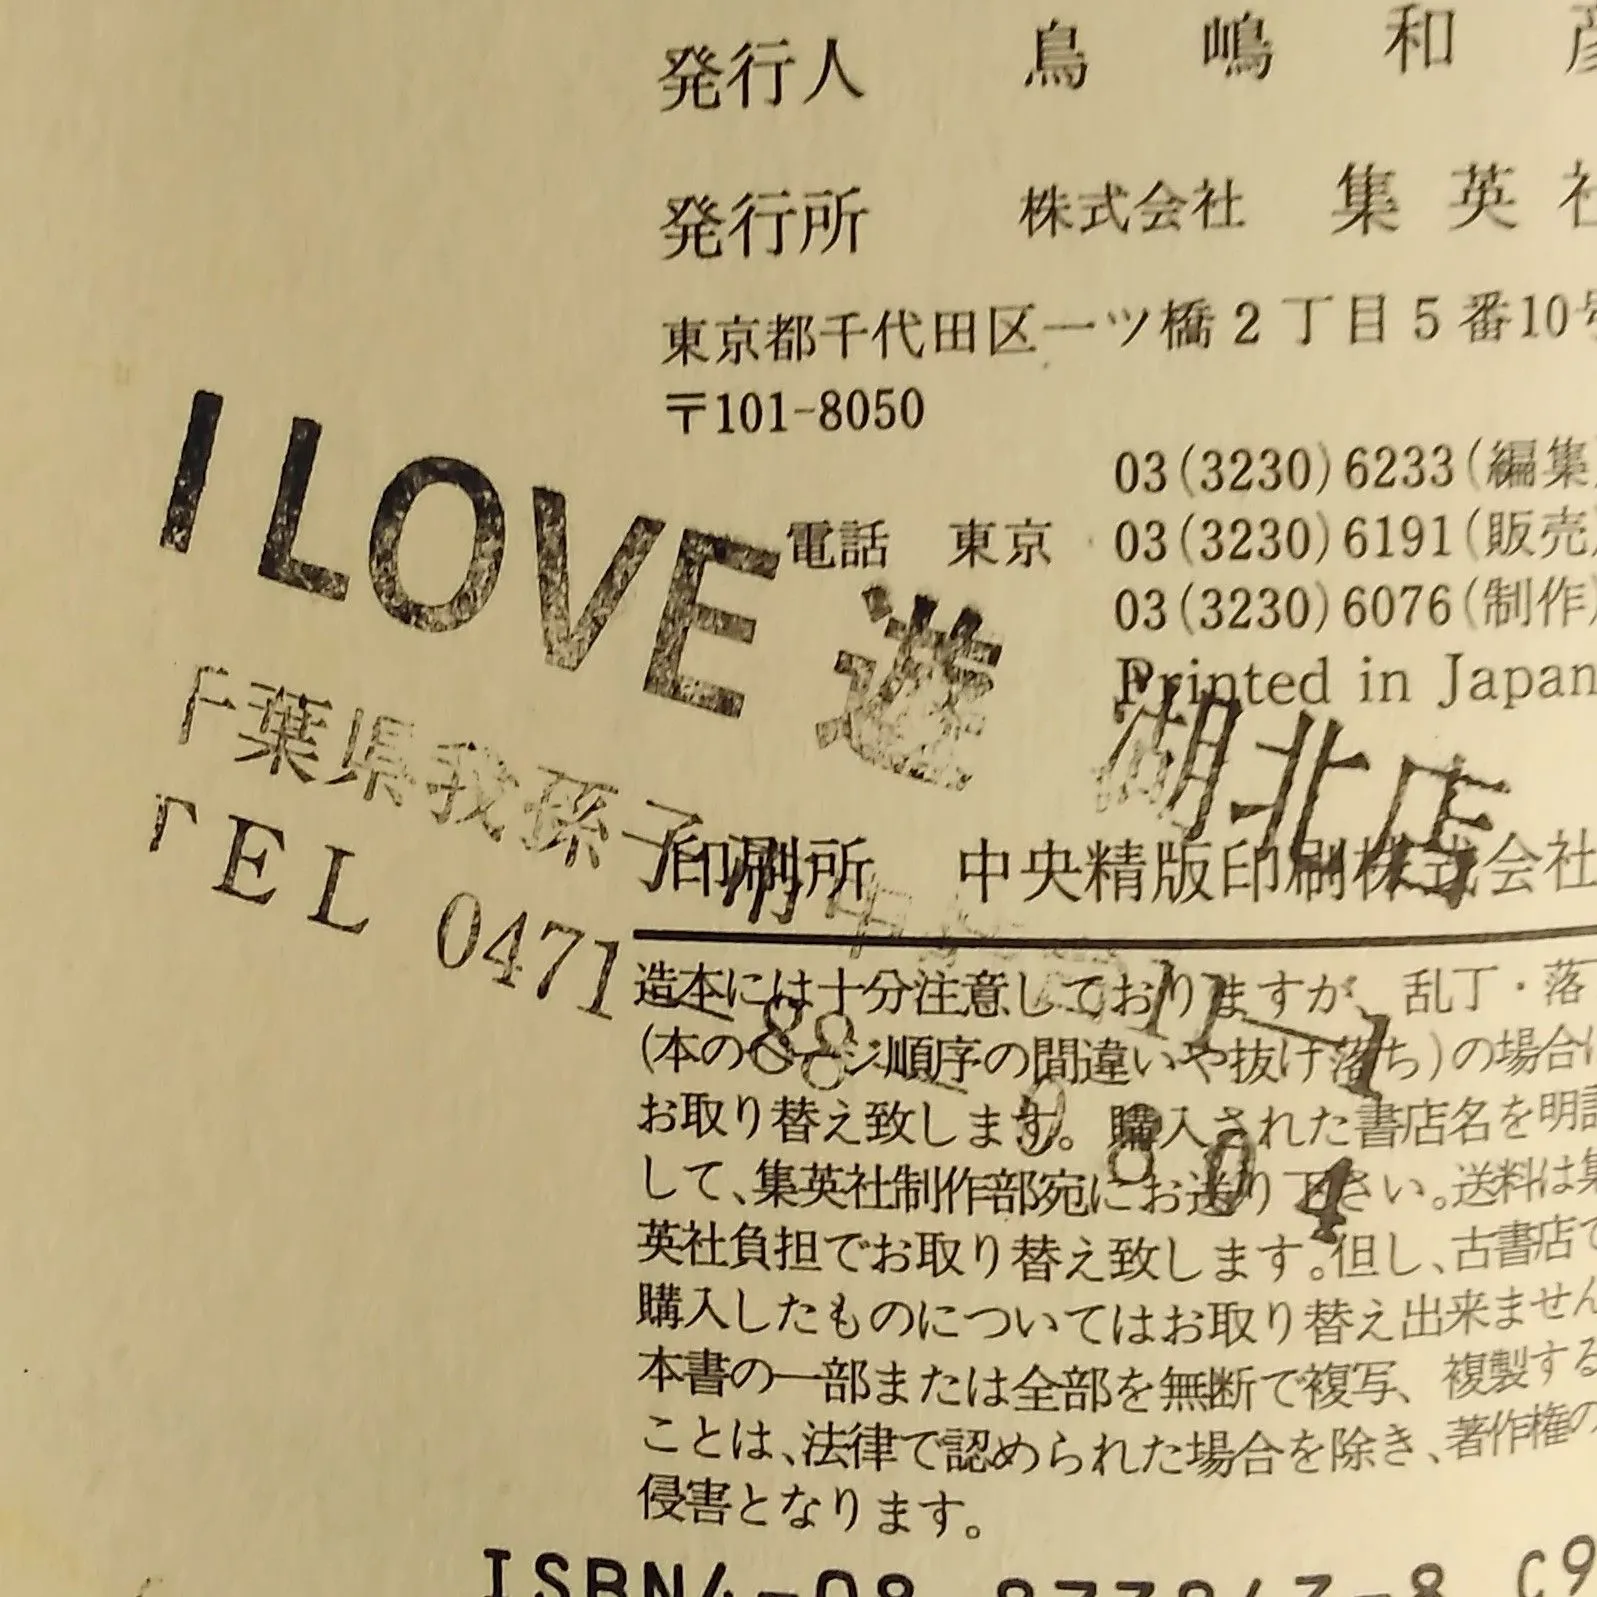 発行人 鳥嶋和彦
発行所 株式会社 集英社
東京都千代田区一ツ橋2丁目5番10号
〒101-8050
03(3230)6233(編集)
電話 東京 03(3230)6191(販売)
03(3230)6076(制作)
Printed in Japan
I LOVE 遊 湖北店
千葉県我孫子市中
TEL 0471-88-9804
印刷所 中央精版印刷株式会社
造本には十分注意しておりますが、乱丁・落
(本のページ順序の間違いや抜け落ち)の場合は
お取り替え致します。購入された書店名を明記
して、集英社制作部宛にお送り下さい。送料は集
英社負担でお取り替え致します。但し、古書店で
購入したものについてはお取り替え出来ません
本書の一部または全部を無断で複写、複製する
ことは、法律で認められた場合を除き、著作権の
侵害となります。
ISBN4-08-873243-8 C9